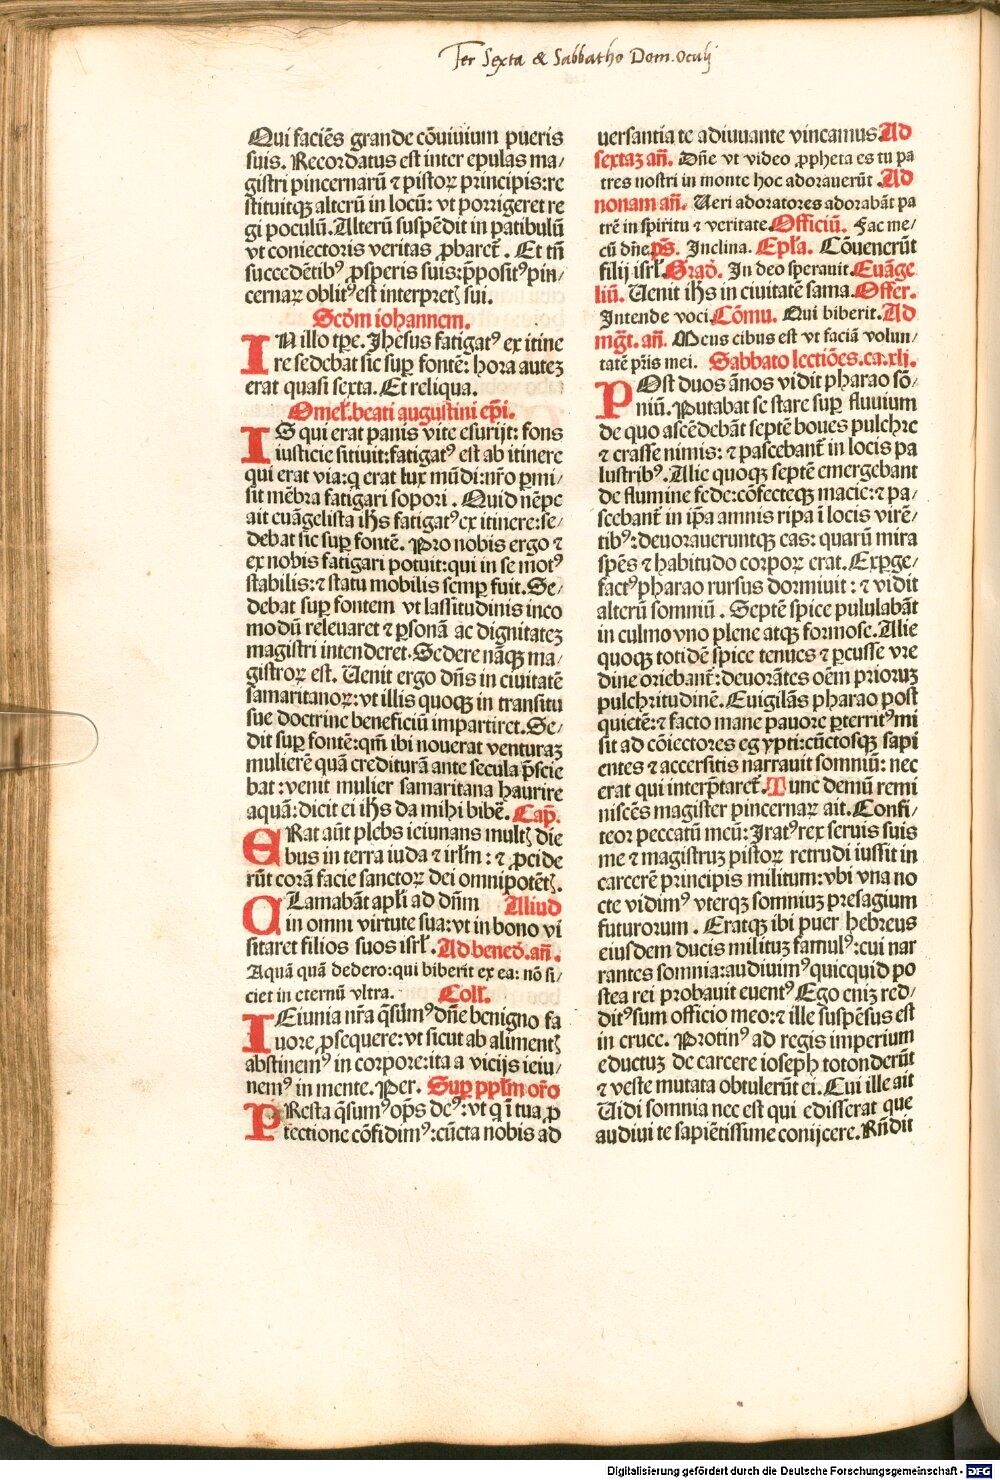 Fer Sexta & Sabbatho Dom. Oculj
Qui faciẽs grande cõuiuium pueris
suis. Recordatus est inter epulas ma/
gistri pincernarũ ⁊ pistoꝝ principis:re
stituitqꝫ alterũ in locũ: vt porrigeret re
gi poculũ. Alterũ suspẽdit in patibulũ
vt coniectoris veritas ꝓbaret̃. Et tñ
succedẽtibꝰ ꝓsperis suis:p̃positꝰ pin/
cernaꝝ oblitꝰ est interpretꝭ sui.
Scdm̃ iohannem.
IN illo tꝑe. Jhesus fatigatꝰ ex itine
re sedebat sic suꝑ fontẽ: hora autez
erat quasi sexta. Et reliqua.
Omel̃. beati augustini ep̃i.
IS qui erat panis vite esurijt: fons
iusticie sitiuit:fatigatꝰ est ab itinere
qui erat via:q̃ erat lux mũdi:nr̃o ꝑmi/
sit mẽbra fatigari sopori. Quid nẽpe
ait euãgelista ihs̃ fatigatꝰ ex itinere:se/
debat sic suꝑ fontẽ. Pro nobis ergo ⁊
ex nobis fatigari potuit:qui in se motꝰ
stabilis:⁊ statu mobilis semꝑ fuit. Se/
debat suꝑ fontem vt lassitudinis inco
modũ releuaret ⁊ ꝑsonã ac dignitatez
magistri intenderet. Sedere nãqꝫ ma/
gistroꝝ est. Uenit ergo dñs in ciuitatẽ
samaritanoꝝ:vt illis quoqꝫ in transitu
sue doctrine beneficiũ impartiret. Se/
dit suꝑ fontẽ:qm̃ ibi nouerat venturaz
mulierẽ quã crediturã ante secula p̃scie
bat:venit mulier samaritana haurire
aquã:dicit ei ihs̃ da mihi bibẽ. Cap̃.
ERat aũt plebs ieiunans multꝭ die
bus in terra iuda ⁊ irl̃m: ⁊ ꝓcide
rũt corã facie sanctoꝝ dei omnipotẽtꝭ.
CLamabãt apl̃i ad dñm Aliud
in omni virtute sua:vt in bono vi
sitaret filios suos isrl̃. Ad bened̃. añ.
Aquã quã dedero:qui biberit ex ea: nõ si/
ciet in eternũ vltra. Coll̃.
IEiunia nr̃a q̃sum̃ꝰ dñe benigno fa
uore ꝓsequere:vt sicut ab alimentꝭ
abstinemꝰ in corpore:ita a vicijs ieiu/
nemꝰ in mente. Per. Suꝑ ppl̃m or̃o
PResta q̃sumꝰ op̃s deꝰ:vt q̃ ĩ tua ꝓ
tectione cõfidimꝰ:cũcta nobis ad
uersantia te adiuuante vincamus Ad
sextaz añ. Dñe vt video ꝓpheta es tu pa
tres nostri in monte hoc adorauerũt. Ad
nonam añ. Ueri adoratores adorabãt pa
trẽ in spiritu ⁊ veritate. Officiũ. Fac me/
cũ dñe. p̃s. Inclina. Epl̃a. Cõuenerũt
filij isrl̃. Grad̃. In deo sperauit. Euãge
liũ. Uenit ihs̃ in ciuitatẽ sama. Offer.
Intende voci. Cõmu. Qui biberit. Ad
mg̃t. añ. Meus cibus est vt faciã volun/
tatẽ pr̃is mei. Sabbato lectiões. ca. xlj.
POst duos ãnos vidit pharao sõ/
niũ. Putabat se stare suꝑ fluuium
de quo ascẽdebãt septẽ boues pulchre
⁊ crasse nimis: ⁊ pascebant̃ in locis pa
lustribꝰ. Alie quoqꝫ septẽ emergebant
de flumine fede:cõfecteqꝫ macie:⁊ pa/
scebant̃ in ip̃a amnis ripa ĩ locis virẽ/
tibꝰ:deuoraueruntqꝫ eas: quarũ mira
spẽs ⁊ habitudo corpoꝝ erat. Exꝑge/
factꝰ pharao rursus dormiuit: ⁊ vidit
alterũ somniũ. Septẽ spice pululabãt
in culmo vno plene atqꝫ formose. Alie
quoqꝫ totidẽ spice tenues ⁊ ꝑcusse vre
dine oriebant̃: deuorãtes oẽm prioruz
pulchritudinẽ. Euigilãs pharao post
quietẽ: ⁊ facto mane pauore ꝑterritꝰ mi
sit ad cõiectores egypti:cũctosqꝫ sapi
entes ⁊ accersitis narrauit somniũ: nec
erat qui interp̃taret̃. Tunc demũ remi
niscẽs magister pincernaꝝ ait. Confi/
teor peccatũ meũ: Iratꝰ rex seruis suis
me ⁊ magistruz pistoꝝ retrudi iussit in
carcerẽ principis militum:vbi vna no
cte vidimꝰ vterqꝫ somniuz presagium
futurorum. Eratqꝫ ibi puer hebreus
eiusdem ducis milituz famulꝰ:cui nar
rantes somnia:audiuimꝰ quicquid po
stea rei probauit euentꝰ Ego eniz red/
ditꝰ sum officio meo:⁊ ille suspẽsus est
in cruce. Protinꝰ ad regis imperium
eductuz de carcere ioseph̃ totonderũt
⁊ veste mutata obtulerũt ei. Cui ille ait
Uidi somnia nec est qui edisserat que
audiui te sapiẽtissime conijcere. Rñdit
Digitalisierung gefördert durch die Deutsche Forschungsgemeinschaft - DFG